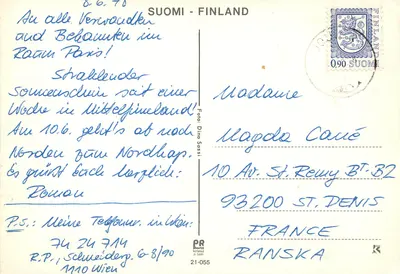 8.6.90
SUOMI - FINLAND
An alle Verwandten
und Bekannten im
Raum Paris!
Strahlender
Sonnenschein seit einer
Woche in Mittelfinnland!
Am 10.6. geht's ab nach
Norden zum Nordkap.
Es grüßt Euch herzlich:
Roman
P.S.: Meine Telefonnr. in Wien:
74 24 714
R.P., Schneiderg. 6-8/90
1110 Wien
Foto: Dino Sassi
PR
21-055
0,90 SUOMI
FINLAND
Madame
Magda Cané
10 Av. St. Remy Bt. B2
93200 ST. DENIS
FRANCE
RANSKA